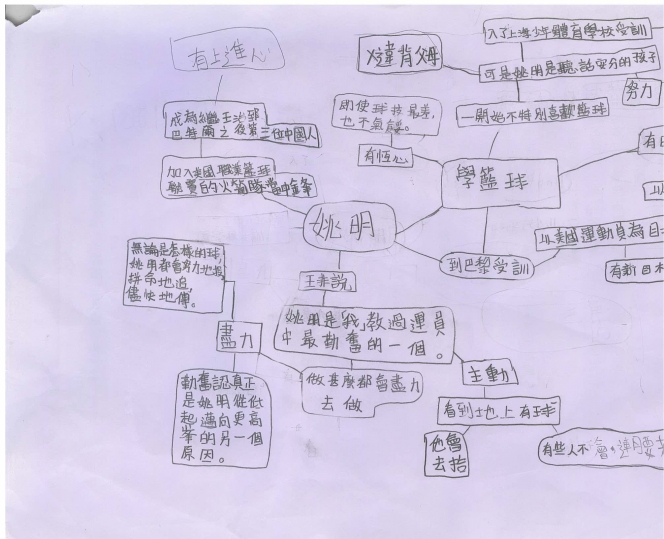 有上進心
成為繼王治郅
巴特爾之後第三位中國人
加入美國職業籃球
聯賽的火箭隊當中鋒
即使球技最差,
也不氣餒。
有恆心
X違背父母
入了上海少年體育學校受訓
可是姚明是聽話安分的孩子
努力
一開始不特別喜歡籃球
學籃球
姚明
到巴黎受訓
以美國運動員為目
有新目
無論是怎樣的球,
姚明都會努力地
拼命地追,
儘快地傳。
盡力
勤奮認真正
是姚明從低
起邁向更高
峯的另一個
原因。
王非說
姚明是「我」教過運員
中最勤奮的一個。
做甚麼都會盡力
去做
主動
看到地上有球
他會
去拾
有些人不會,還要